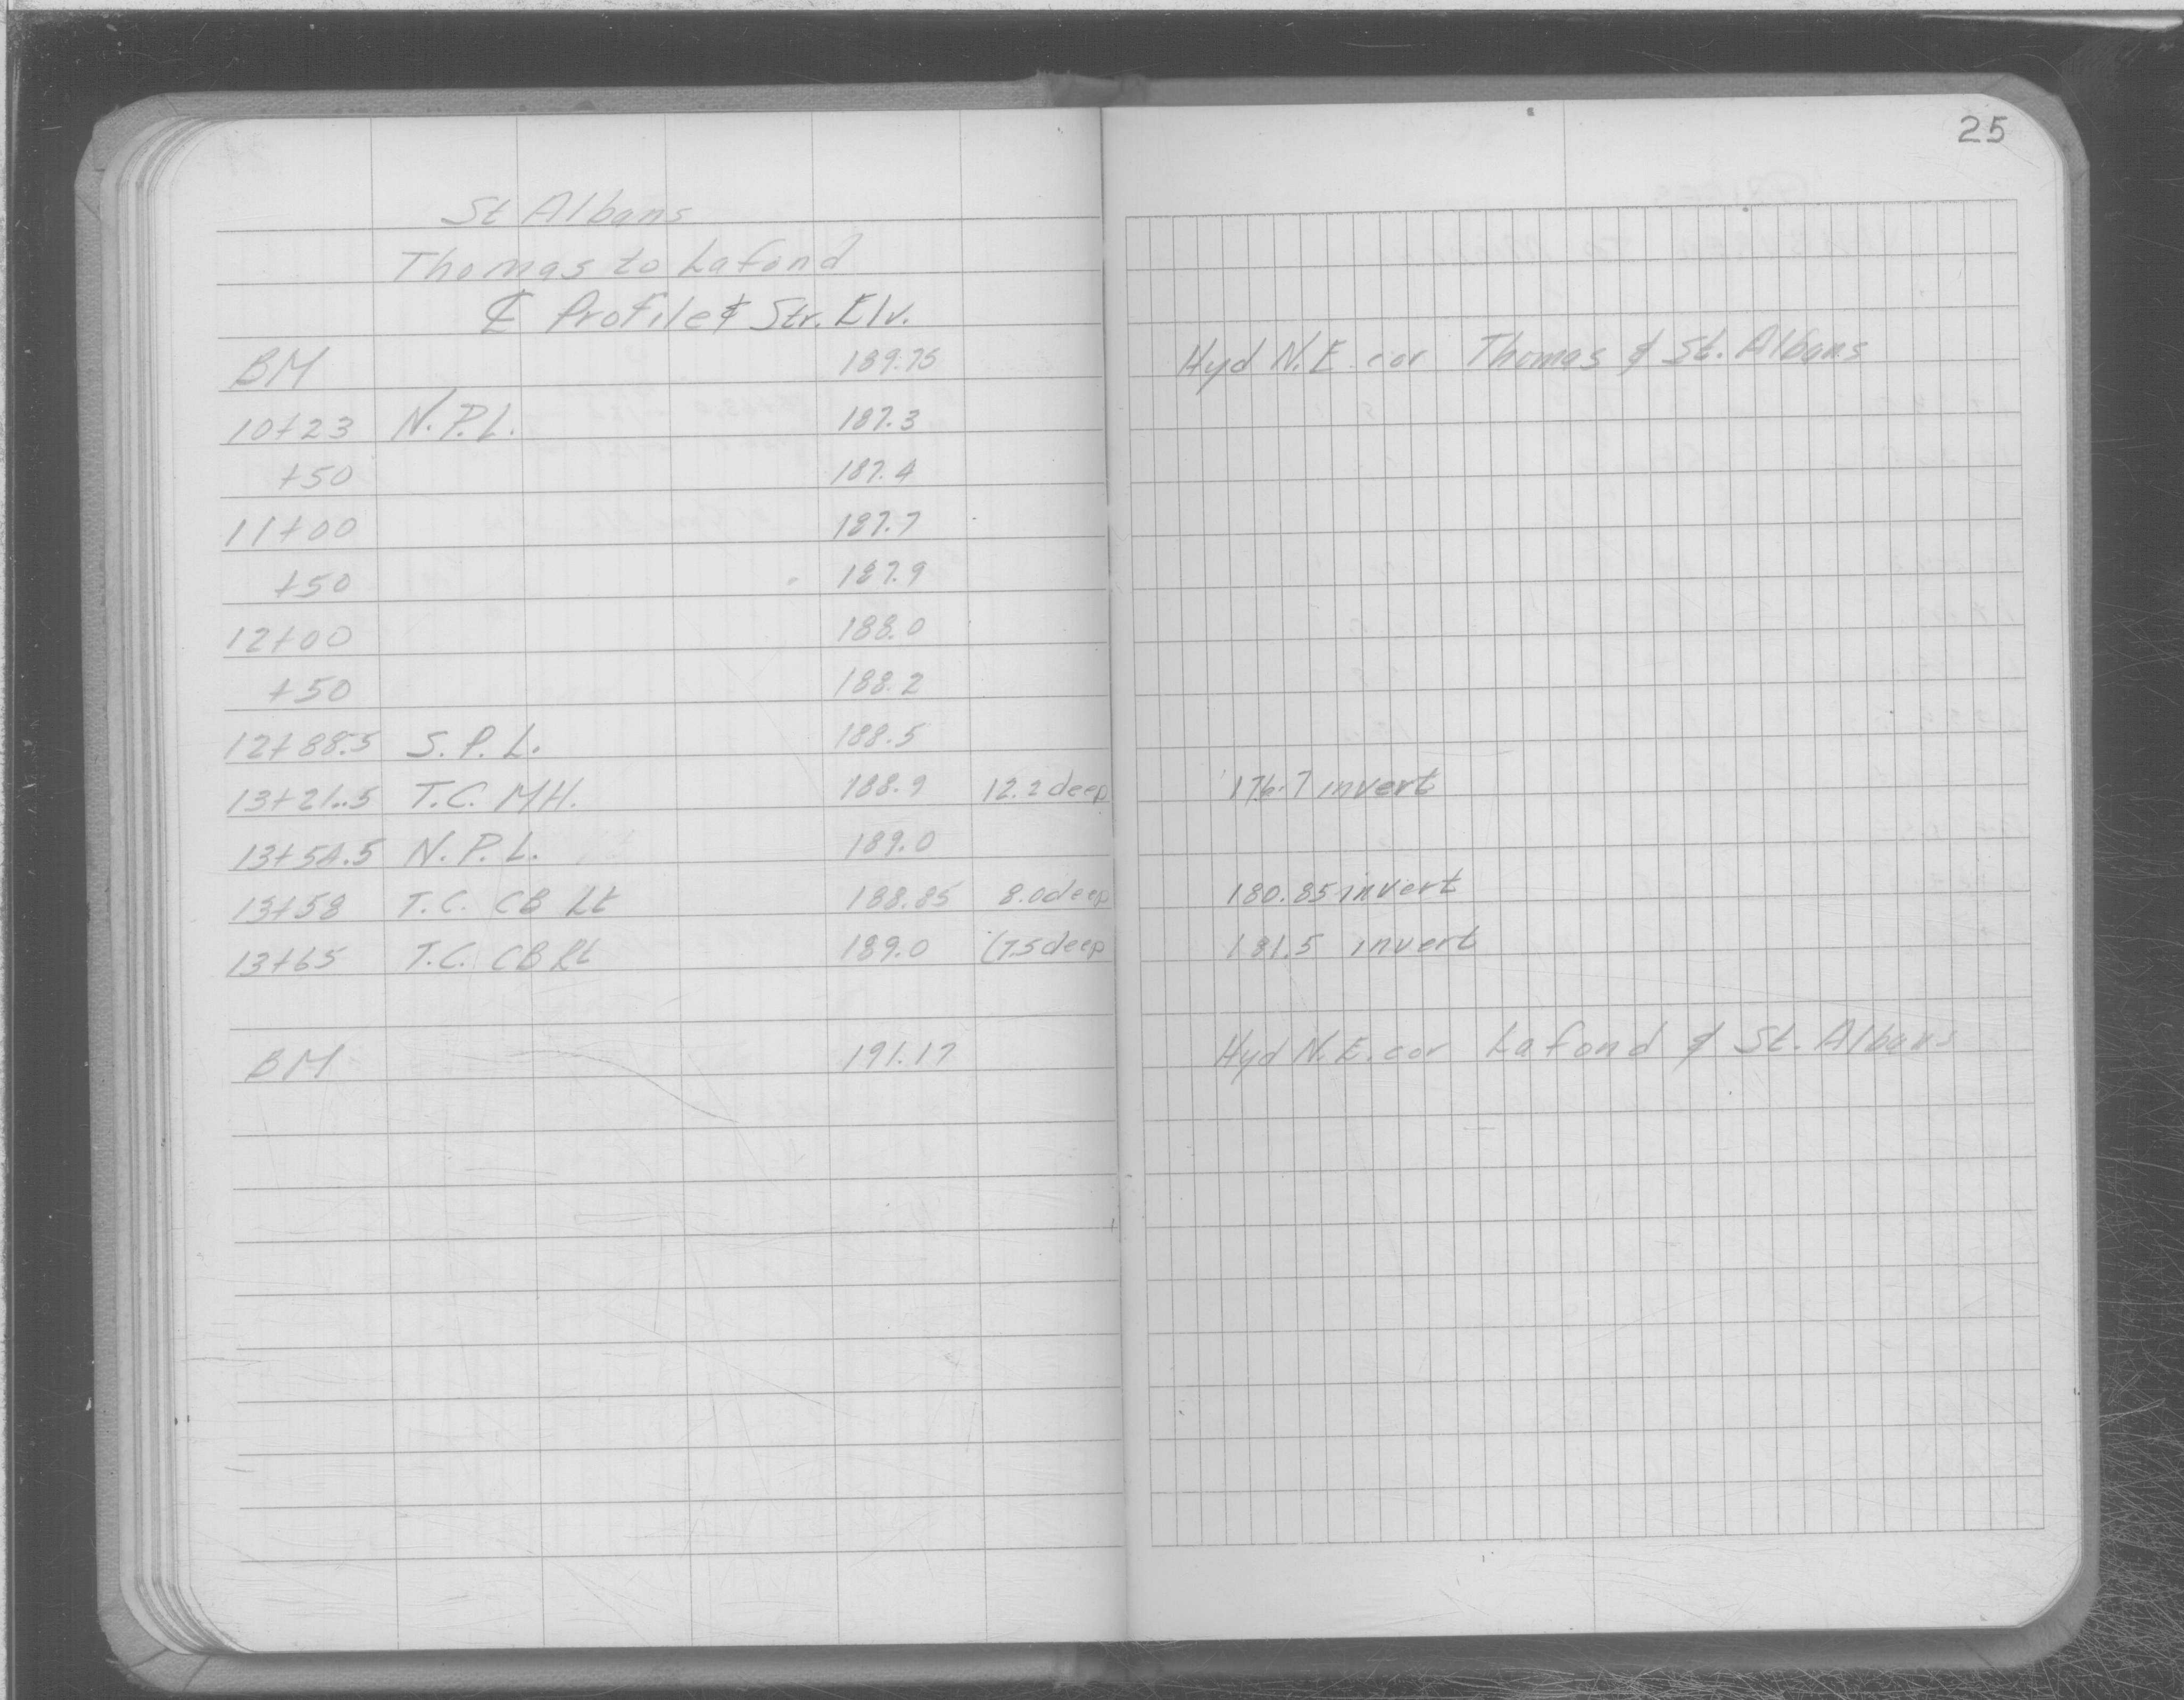 25
St Albans
Thomas to Lafond
℄ Profile & Str. Elv.
BM 189.75 Hyd N.E. cor Thomas & St. Albans
10+23 N.P.L. 187.3
+50 187.4
11+00 187.7
+50 187.9
12+00 188.0
+50 188.2
12+88.5 S.P.L. 188.5
13+21.5 T.C. MH. 188.9 12.2 deep 176.7 invert
13+54.5 N.P.L. 189.0
13+58 T.C. CB Lt 188.85 8.0 deep 180.85 invert
13+65 T.C. CB Rt 189.0 (7.5 deep 181.5 invert
BM 191.17 Hyd N.E. cor Lafond & St. Albans